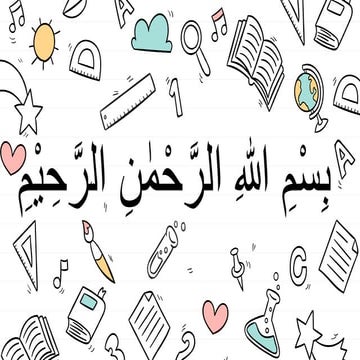 A
1
بِسْمِ اللهِ الرَّحْمٰنِ الرَّحِيْمِ
A
C
3
2